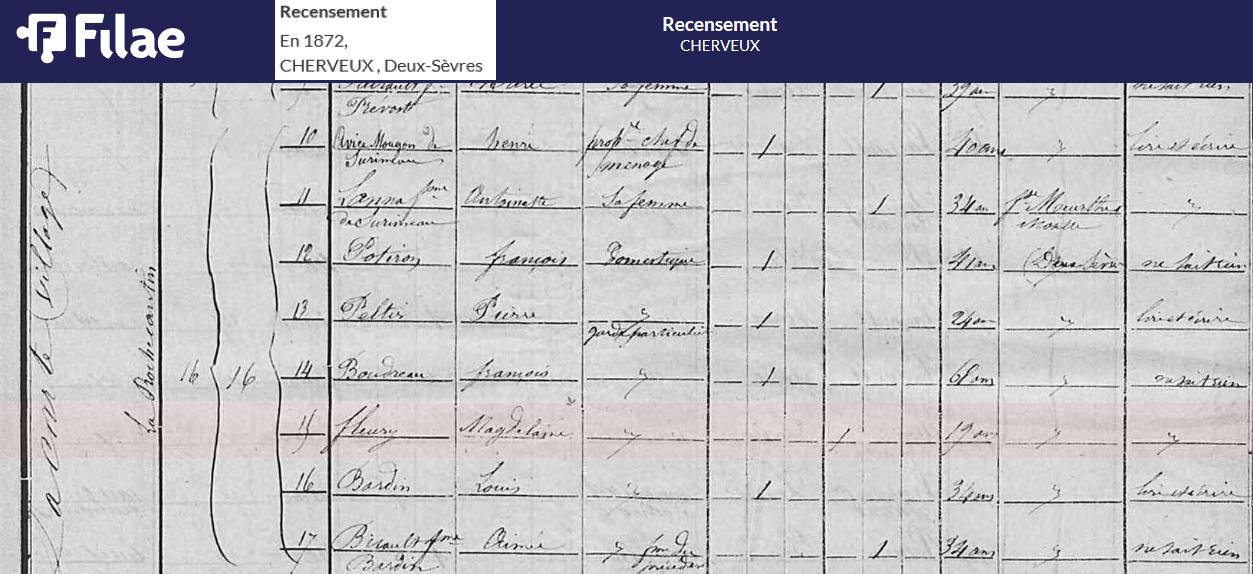 Filae
Recensement
En 1872,
CHERVEUX , Deux-Sèvres
Recensement
CHERVEUX
Sa femme 1 39 ans
Prévost
10 Avice Mougon de henri prop.re chef de 1 40 ans " lire et écrire
Surimeau ménage
11 Lanna f.me Antoinette Sa femme 1 34 an Meurthe "
de Surimeau Moselle
12 Potiron françois Domestique 1 41 ans (Deux Sèvres ne sait rien
13 Peltir Pierre " 1 24 an " lire et écrire
garde particulier
16 16 14 Boudreau françois " 1 61 ans " ne sait rien
15 fleury Magdelaine " 1 19 ans " "
16 Bardin Louis " 1 34 ans " lire et écrire
17 f.me Aimée " f.me du 1 34 ans " ne sait rien
Bardin précédent
village
la Rochecantin